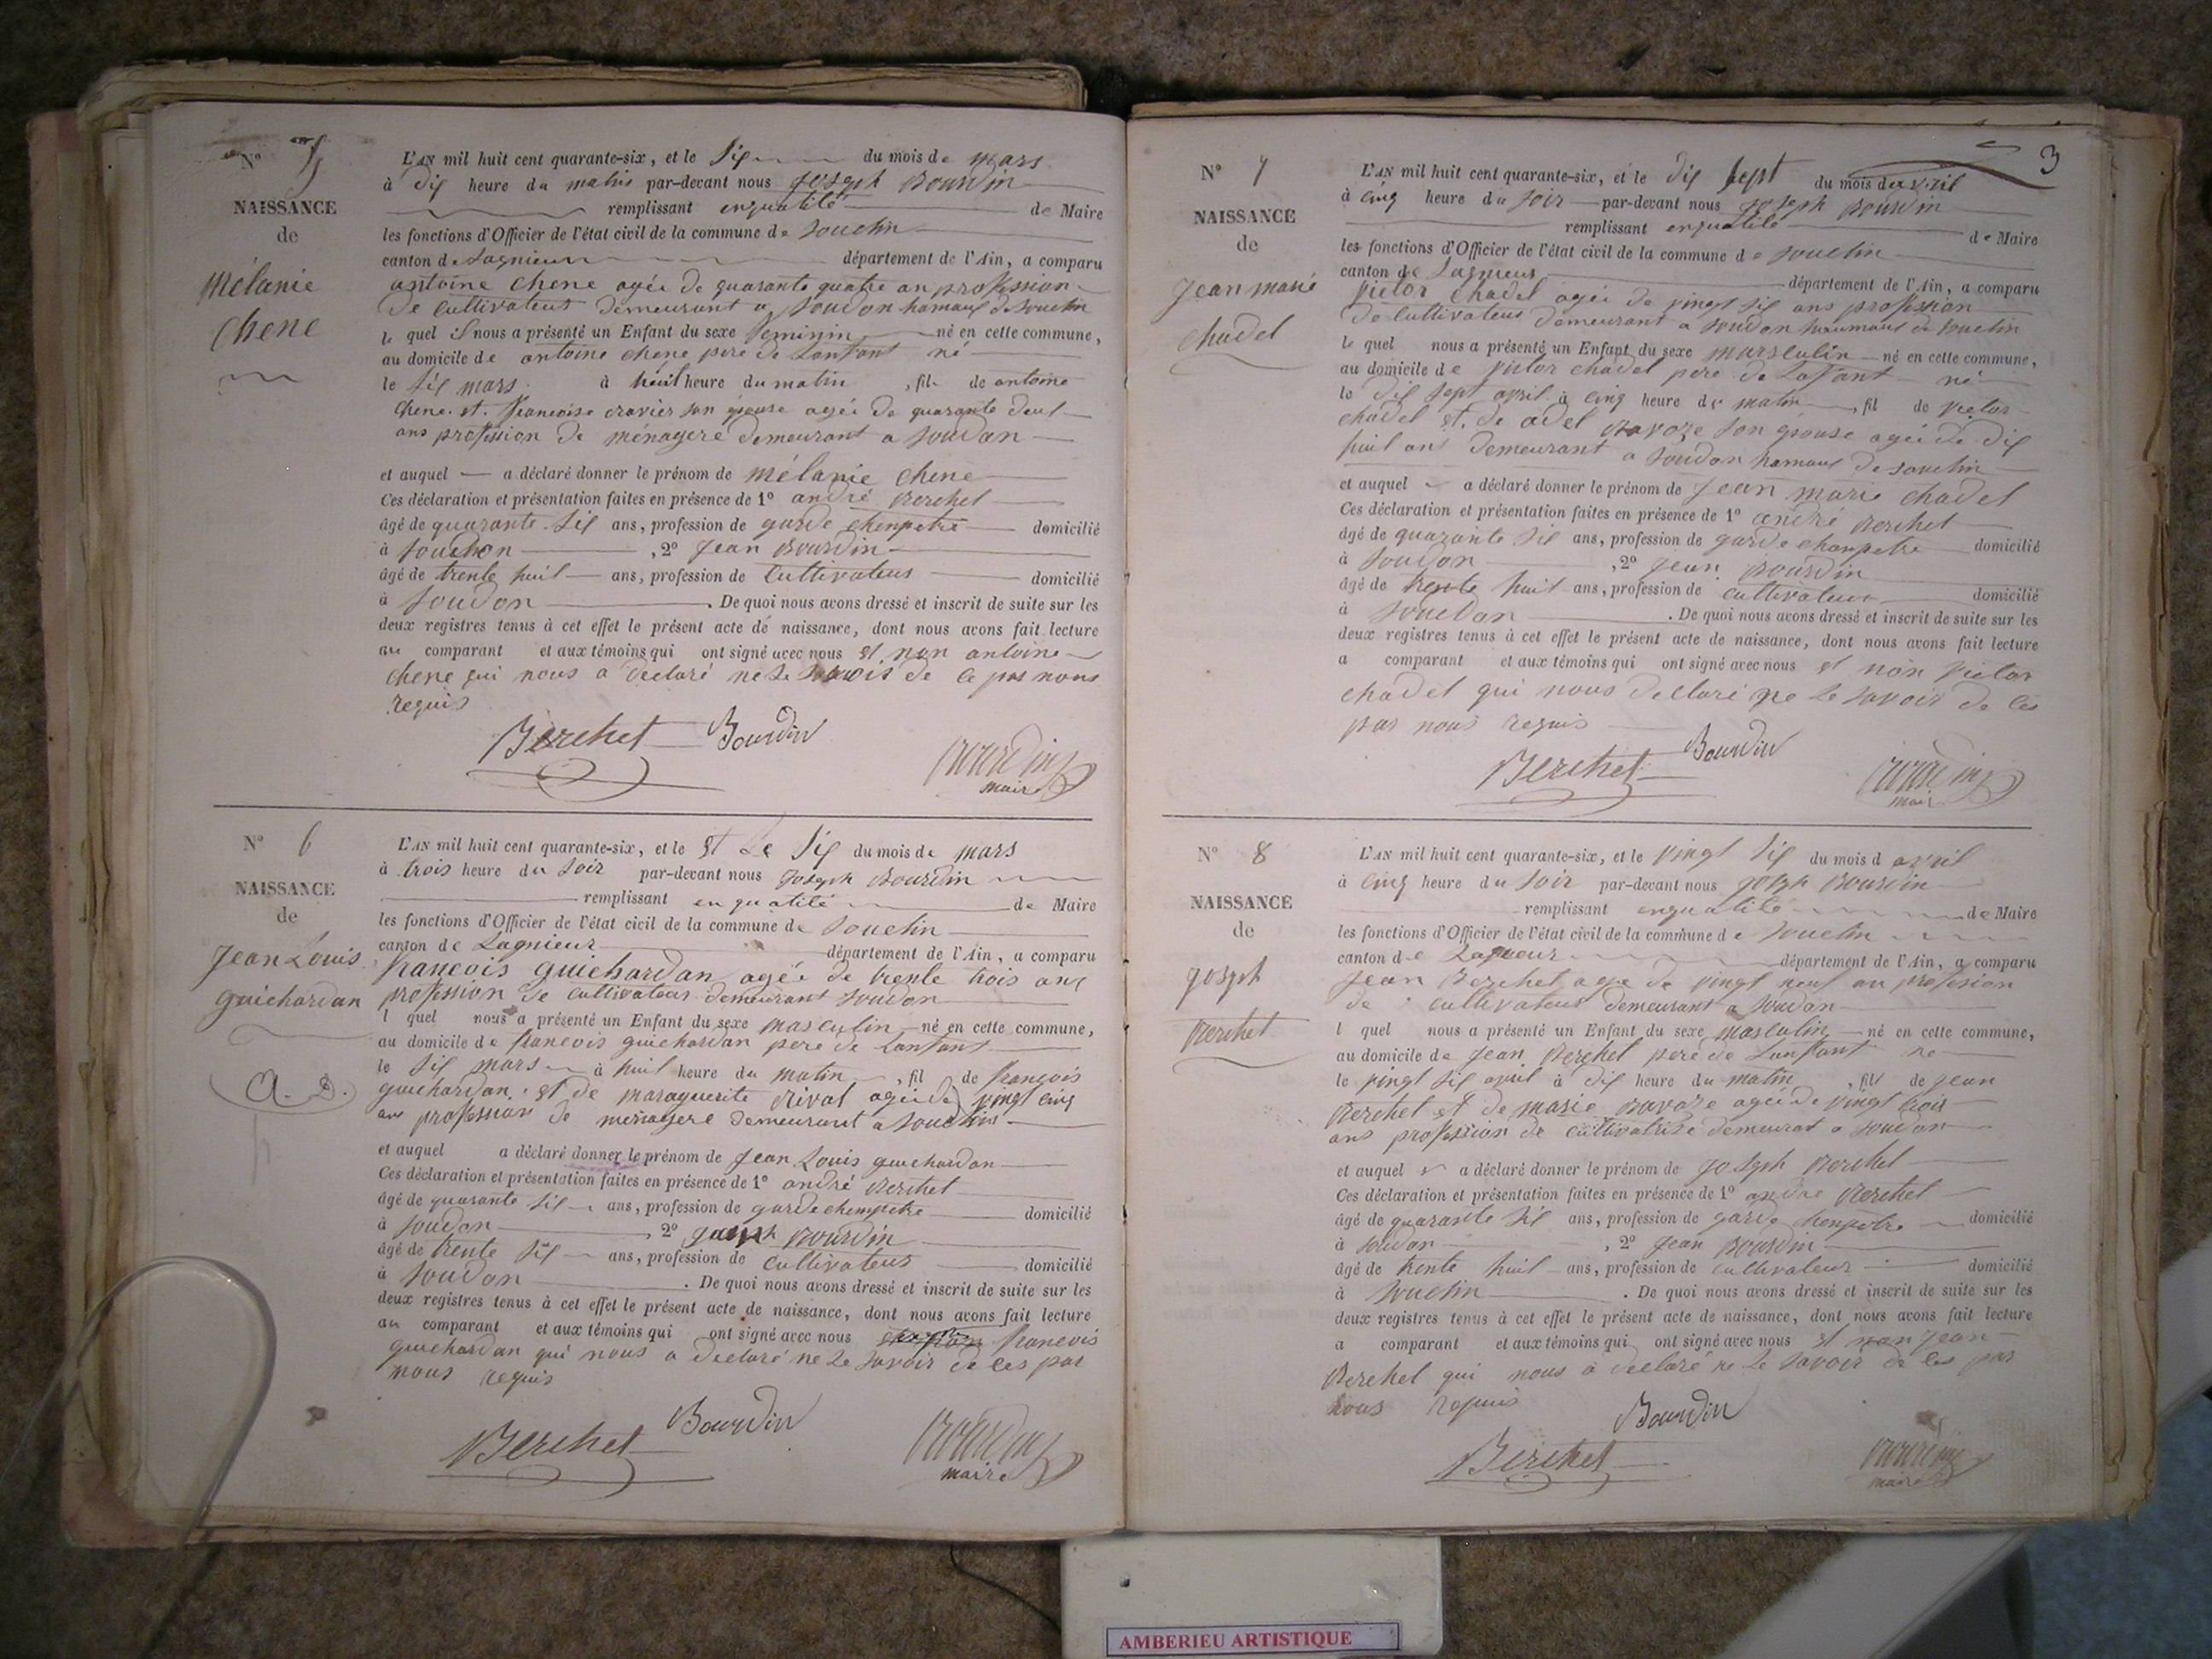 Nº 5
NAISSANCE
de
Mélanie
Chene
L'AN mil huit cent quarante-six, et le Six du mois de mars
à dix heure du matin par-devant nous Joseph Bourdin
remplissant enqualité de Maire
les fonctions d'Officier de l'état civil de la commune de Souclin
canton de Lagnieux département de l'Ain, a comparu
antoine chene agée de quarante quatre an profession
de cultivateur demeurant a Soudon hamaux de Souclin
le quel il nous a présenté un Enfant du sexe feminin né en cette commune,
au domicile de antoine chene pere de Lanfant né
le Six mars à huit heure du matin , fil de antoine
chene et francoise son epouse agée de quarante deux
ans profession de ménagere demeurant a Soudon
et auquel a déclaré donner le prénom de mélanie chene
Ces déclaration et présentation faites en présence de 1º andré Berchet
âgé de quarante Six ans, profession de garde chenpetre domicilié
à , 2º Jean Bourdin
âgé de trente huit ans, profession de cultivateur domicilié
à Soudon . De quoi nous avons dressé et inscrit de suite sur les
deux registres tenus à cet effet le présent acte de naissance, dont nous avons fait lecture
au comparant et aux témoins qui ont signé avec nous et non antoine
chene qui nous a declaré ne Le Savoir de ce pas nous
requis
Berchet Bourdin Bourdin
maire
Nº 6
NAISSANCE
de
Jean Louis
guichardan
a.D.
L'AN mil huit cent quarante-six, et le et Le Six du mois de mars
à trois heure du Soir par-devant nous Joseph Bourdin
remplissant enqualité de Maire
les fonctions d'Officier de l'état civil de la commune de Souclin
canton de Lagnieux département de l'Ain, a comparu
francois guichardan agée de trente trois ans
profession de cultivateur demeurant Soudon
l quel nous a présenté un Enfant du sexe masculin né en cette commune,
au domicile de francois guichardan pere de Lanfant
le Six mars à huit heure du matin , fil de francois
guichardan et de maraguerite agée de vingt cinq
ans profession de menagere demeurant a
et auquel a déclaré donner le prénom de Jean Louis guichardan
Ces déclaration et présentation faites en présence de 1º andré Berchet
âgé de quarante Six ans, profession de garde chempetre domicilié
à Soudon , 2º Bourdin
âgé de trente Six ans, profession de cultivateur domicilié
à Soudon . De quoi nous avons dressé et inscrit de suite sur les
deux registres tenus à cet effet le présent acte de naissance, dont nous avons fait lecture
au comparant et aux témoins qui ont signé avec nous francois
guichardan qui nous a declaré ne Le Savoir de ces par
nous requis
Berchet Bourdin Bourdin
maire
3
Nº 7
NAISSANCE
de
Jean marie
chadel
L'AN mil huit cent quarante-six, et le dix sept du mois de avril
à cinq heure du Soir par-devant nous Joseph Bourdin
remplissant enqualité de Maire
les fonctions d'Officier de l'état civil de la commune de Souclin
canton de Lagnieux département de l'Ain, a comparu
victor chadel agée de vingt Six ans profession
de cultivateur demeurant a Soudon haumaux de Souclin
le quel nous a présenté un Enfant du sexe marsculin né en cette commune,
au domicile de victor chadel pere de Lafant né
le dix sept avril à cinq heure du matin , fil de victor
chadel et de adel son epouse agée de dix
huit ans demeurant a Soudon hamaux de Souclin
et auquel a déclaré donner le prénom de Jean marie chadel
Ces déclaration et présentation faites en présence de 1º andré Berchet
âgé de quarante Six ans, profession de garde chanpetre domicilié
à Soudon , 2º Jean Bourdin
âgé de trente huit ans, profession de cultivateur domicilié
à . De quoi nous avons dressé et inscrit de suite sur les
deux registres tenus à cet effet le présent acte de naissance, dont nous avons fait lecture
a comparant et aux témoins qui ont signé avec nous et non victor
chadel qui nous declaré ne Le Savoir de ces
par nous requis
Berchet Bourdin Bourdin
mair
Nº 8
NAISSANCE
de
Berchet
L'AN mil huit cent quarante-six, et le vingt Six du mois d avril
à cinq heure du Soir par-devant nous Bourdin
remplissant enqualité de Maire
les fonctions d'Officier de l'état civil de la commune de Souclin
canton de département de l'Ain, a comparu
Jean Berchet age de vingt neuf an profesion
de cultivateur demeurant a Soudon
l quel nous a présenté un Enfant du sexe masculin né en cette commune,
au domicile de Jean Berchet pere de Lanfant né
le vingt Six avril à dix heure du matin , fil de Jean
Berchet et de marie agée de vingt trois
ans profession de cultivatrise demeurat a Soudon
et auquel a déclaré donner le prénom de Joseph Berchet
Ces déclaration et présentation faites en présence de 1º andre Berchet
âgé de quarante Six ans, profession de garde chenpetre domicilié
à Soudon , 2º Jean Bourdin
âgé de trente huit ans, profession de cultivateur domicilié
à Souclin . De quoi nous avons dressé et inscrit de suite sur les
deux registres tenus à cet effet le présent acte de naissance, dont nous avons fait lecture
a comparant et aux témoins qui ont signé avec nous et non Jean
Berchet qui nous a declaré ne Le Savoir de ces par
nous requis
Berchet Bourdin Bourdin
maire
AMBERIEU ARTISTIQUE